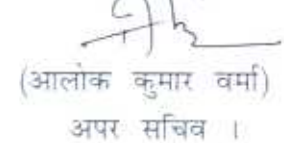 (आलोक कुमार वर्मा)
अपर सचिव ।